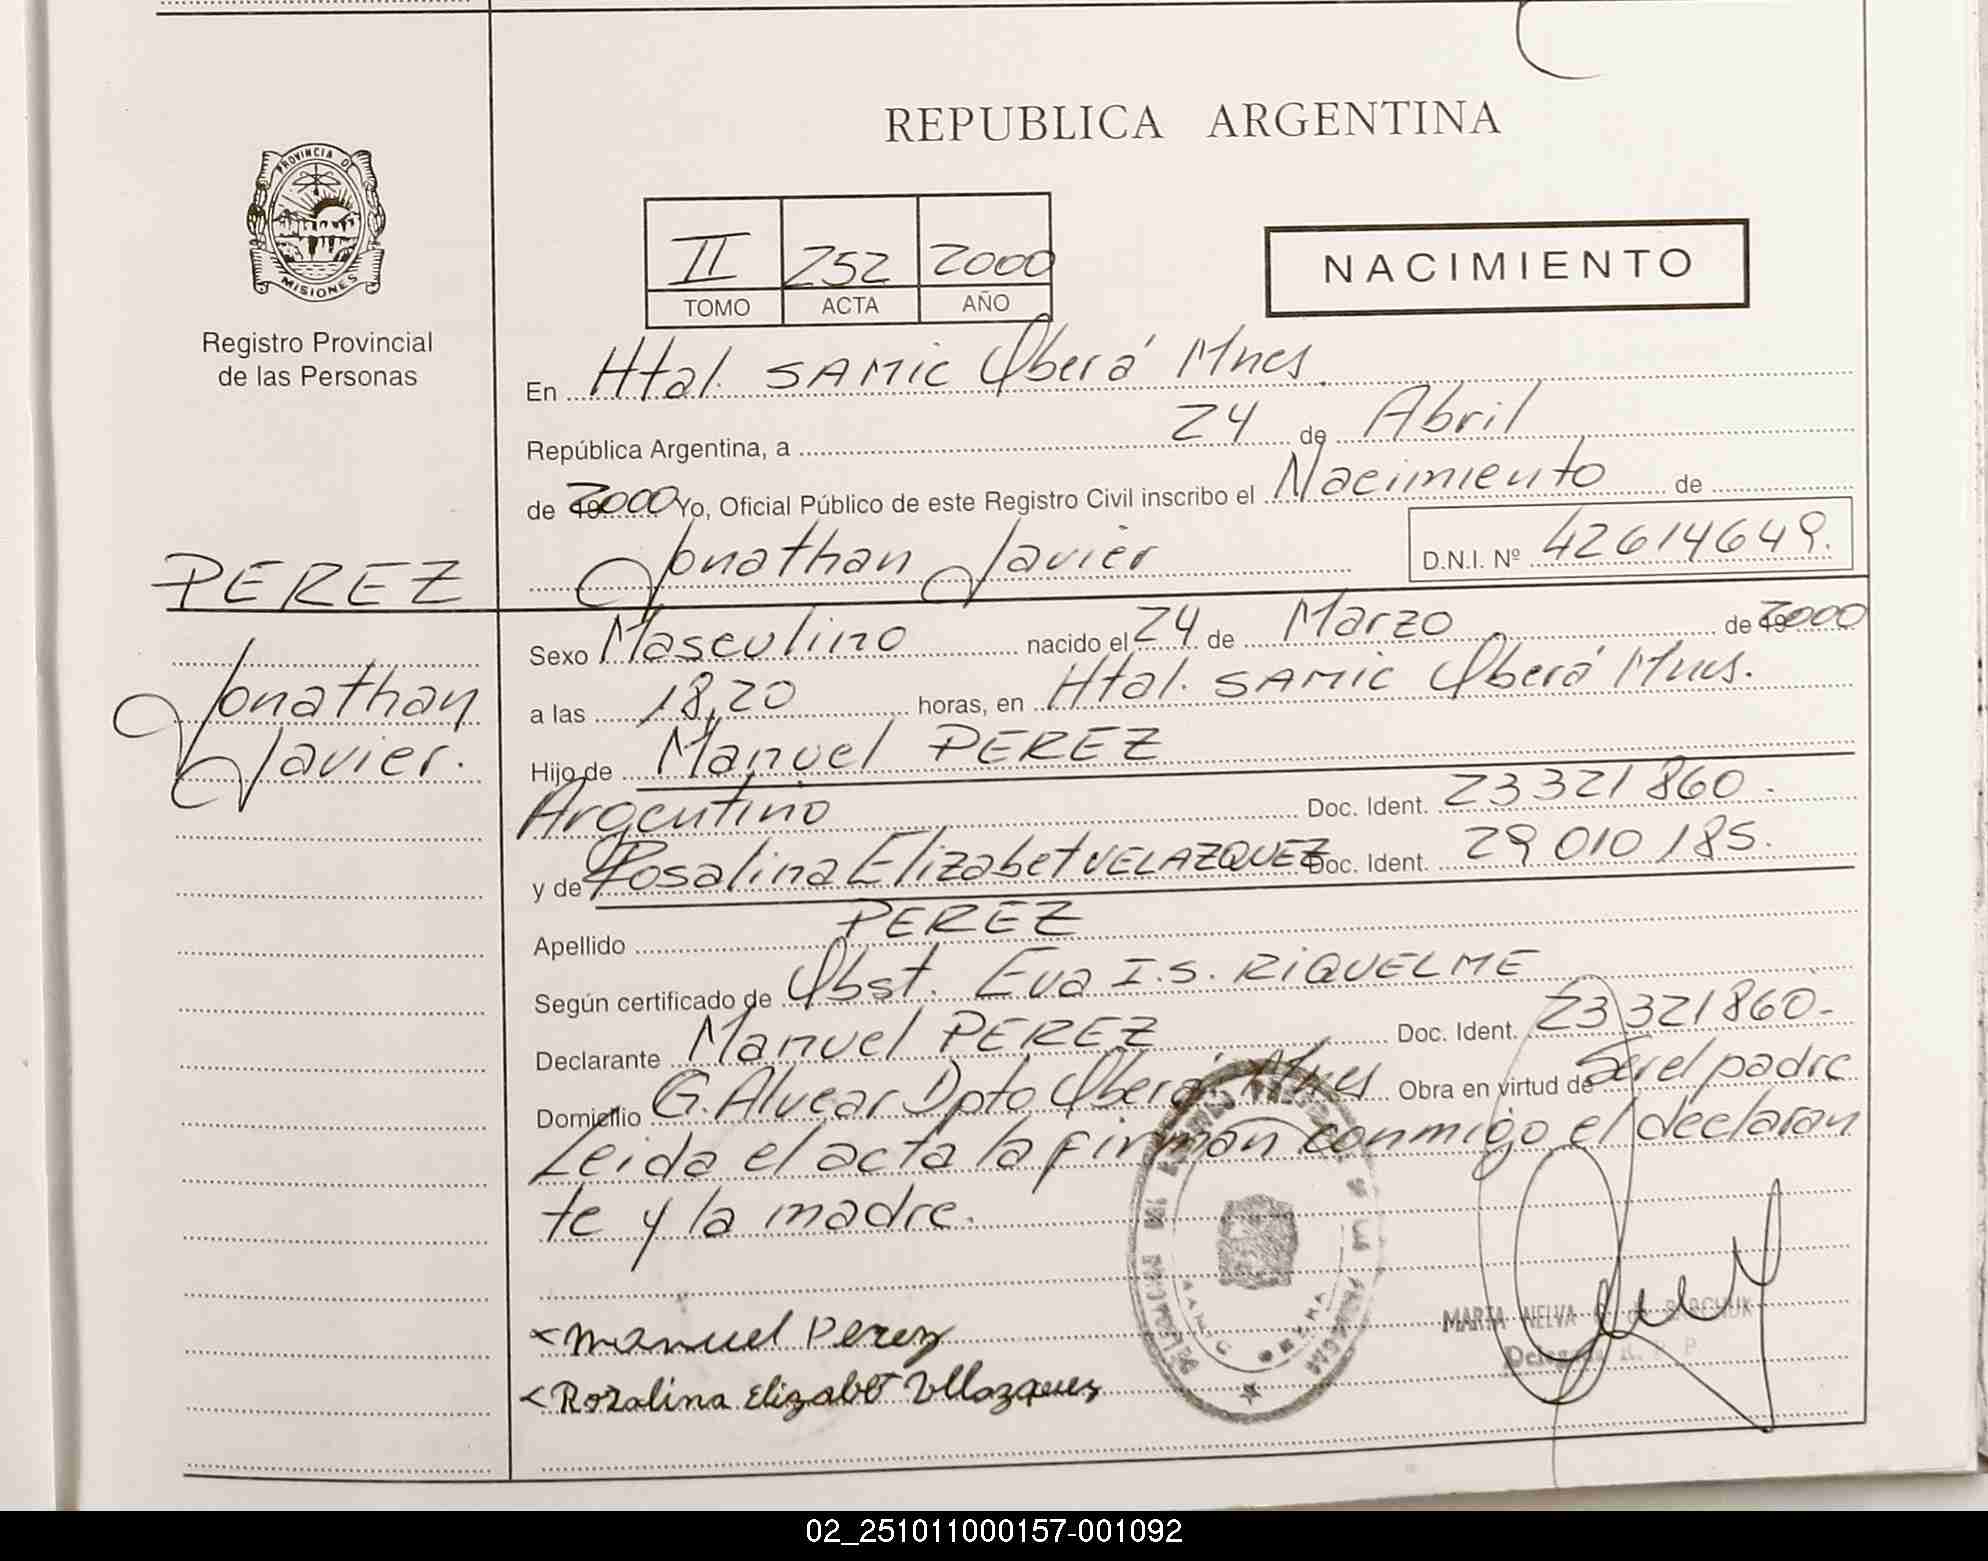 REPUBLICA ARGENTINA
PROVINCIA DE
MISIONES
Registro Provincial
de las Personas
II 252 2000
TOMO ACTA AÑO
NACIMIENTO
En Htal. SAMIC Oberá Mnes.
República Argentina, a 24 de Abril
de 2000 Yo, Oficial Público de este Registro Civil inscribo el Nacimiento de
Jonathan Javier D.N.I. Nº 42614649.
PEREZ
Jonathan
Javier.
Sexo Masculino nacido el 24 de Marzo de 2000
a las 18,20 horas, en Htal. SAMIC Oberá Mnes.
Hijo de Manuel PEREZ
Argentino Doc. Ident. 23 321 860.
y de Rosalina Elizabet VELAZQUEZ Doc. Ident. 29 010 185.
Apellido PEREZ
Según certificado de Obst. Eva I.S. RIQUELME
Declarante Manuel PEREZ Doc. Ident. 23 321 860-
Domicilio G. Alvear Dpto Oberá Mnes Obra en virtud de Ser el padre
Leida el acta la firman conmigo el declaran
te y la madre.
Manuel Perez
Rozalina Elizabet
MARTA NELVA
02_251011000157-001092